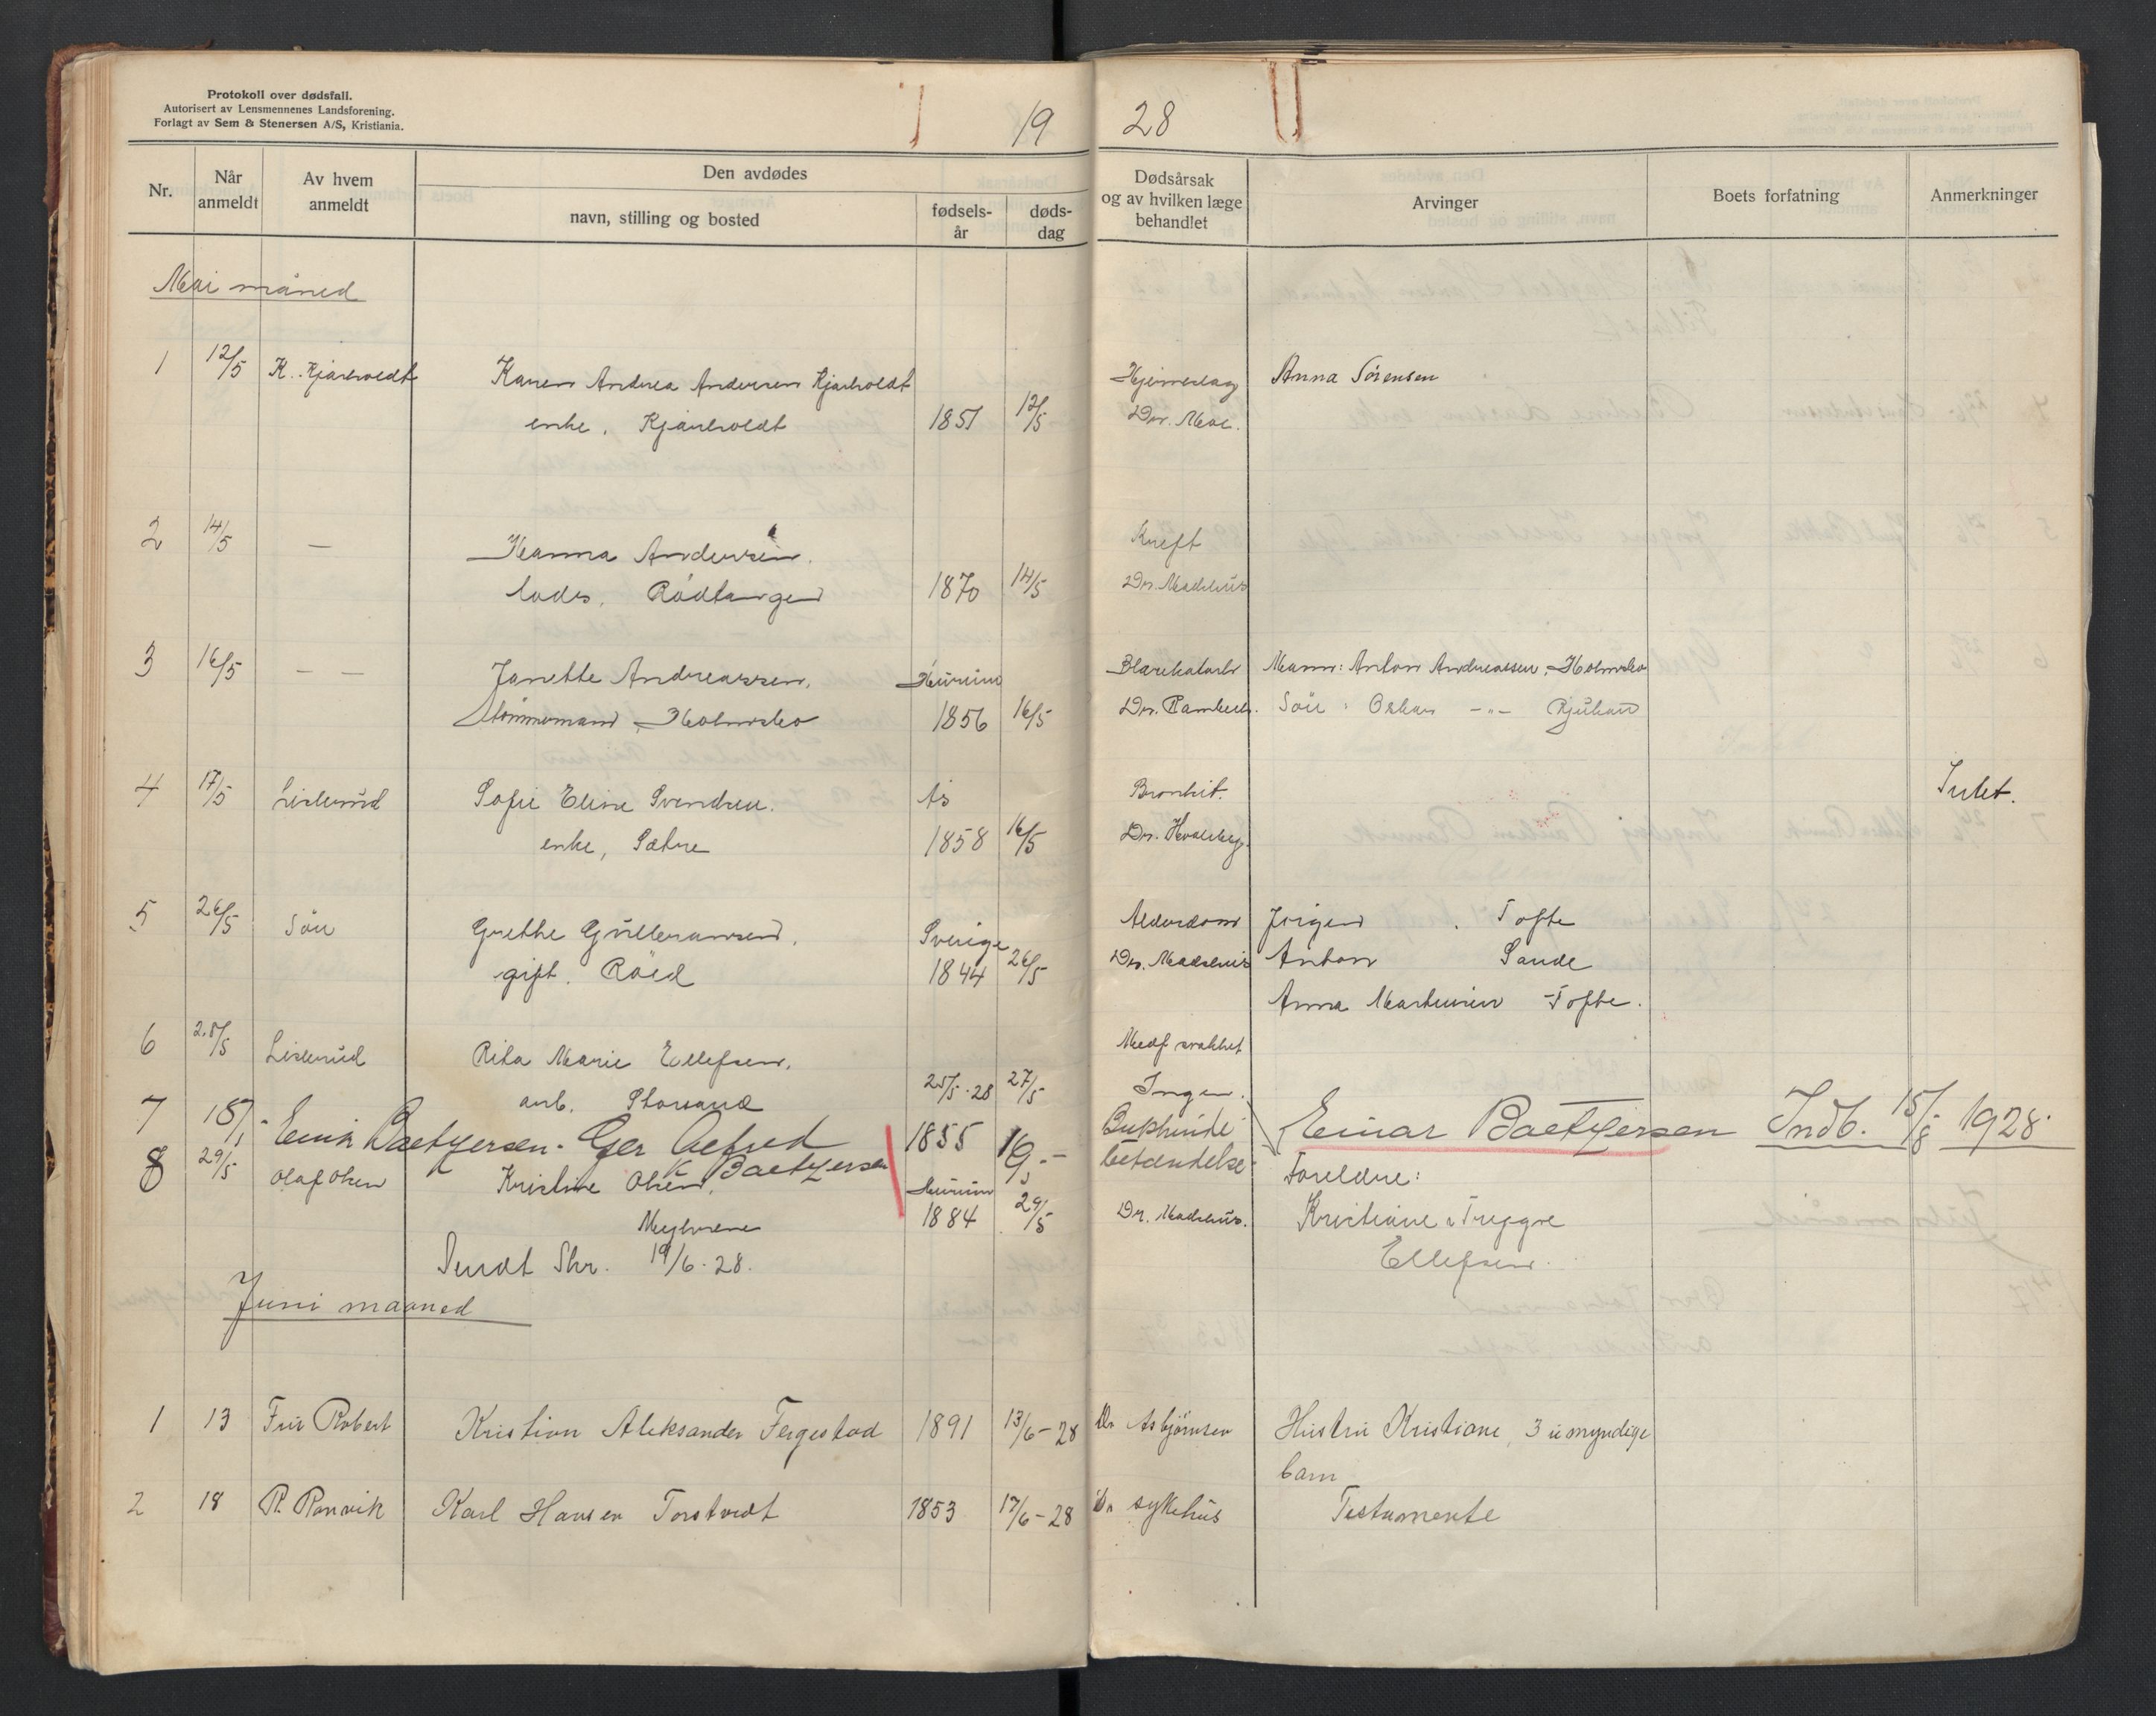 Protokoll over dødsfall.
Autorisert av Lensmennenes Landsforening.
Forlagt av Sem & Stenersen A/S, Kristiania.
19 28
Nr. Når anmeldt Av hvem anmeldt Den avdødes navn, stilling og bosted fødsels-år døds-dag Dødsårsak og av hvilken læge behandlet Arvinger Boets forfatning Anmerkninger
Mai måned
1 12/5 K. Kjærholdt Karen Andrea Andersen Kjærholdt Anna Sörensen
enke, Kjærholdt 1851 12/5 Dr. Moe.
2 14/5 — Hanna Andersen. Kreft
lados, Rödtangen 1870 14/5 Dr. Madshus
3 16/5 — — Janette Andreassen, Hurum Blærekatarh Mann: Anton Andreassen, Holmsbo
Tömmermand, Holmsbo 1856 16/5 Dr. Ramberh. Sön: Oskar -"- Rjukan
4 17/5 Lislerud Sofie Eline Svendsen. Ås Bronkit. Intet.
enke, Sætre 1858 16/5 Dr. Hvalsberg.
5 26/5 Sön Grethe Gulleransen, Sverige Alderdom Jörgen . Tofte
gift. Röed 1844 26/5 Dr. Madshus Anton Sande
Anna Martinsen Tofte.
6 28/5 Lislerud Rita Marie Ellefsen, Medf svakhet
arb. Storsand 25/5-28 27/5 Ingen.
7 18/5 - Emil Baetzersen. Gjer Alfred 1855 19/5 - Bukhinde Einar Baetzersen Indb. 15/8 1928.
K Baetzersen betændelse
8 29/5 Olaf Olsen Kristine Olsen, Hurum Foreldre:
Myhrene 1884 29/5 Dr. Madshus. Kristiane & Tryggve
Sendt Skr. 19/6-28. Ellefsen.
Juni maaned
1 13 Fru Robert Kristian Aleksander Fergestad 1891 13/6-28 Dr Asbjörnsen Hustru Kristiane, 3 umyndige
barn
2 18 R. Ramvik Karl Hansen Torstvedt 1853 17/6-28 Dr sykehus Testamente